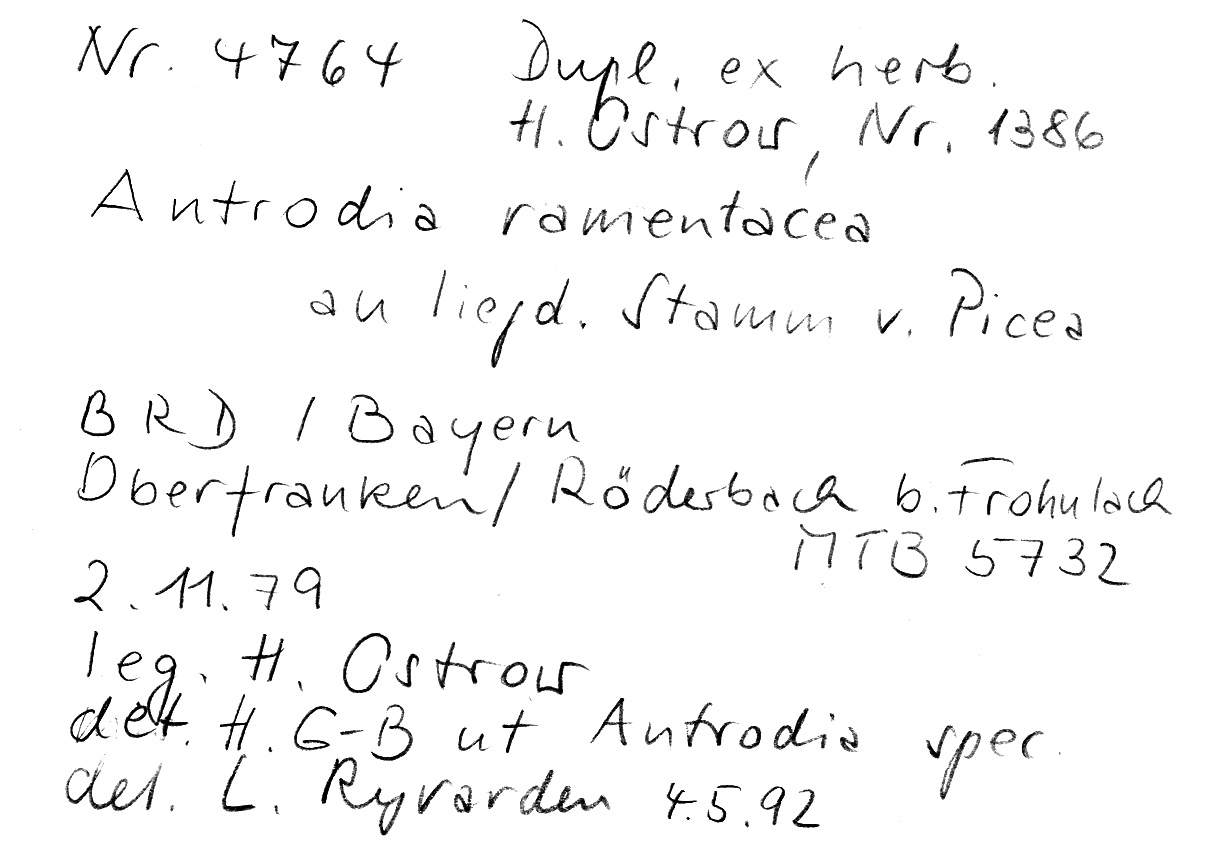 Nr. 4764 Dupl. ex herb.
H. Ostrow, Nr. 1386
Antrodia ramentacea
an liegd. Stamm v. Picea
BRD / Bayern
Oberfranken / Röderbach b. Frohnlach
MTB 5732
2.11.79
leg. H. Ostrow
det. H. G-B ut Antrodia spec.
det. L. Ryvarden 4.5.92